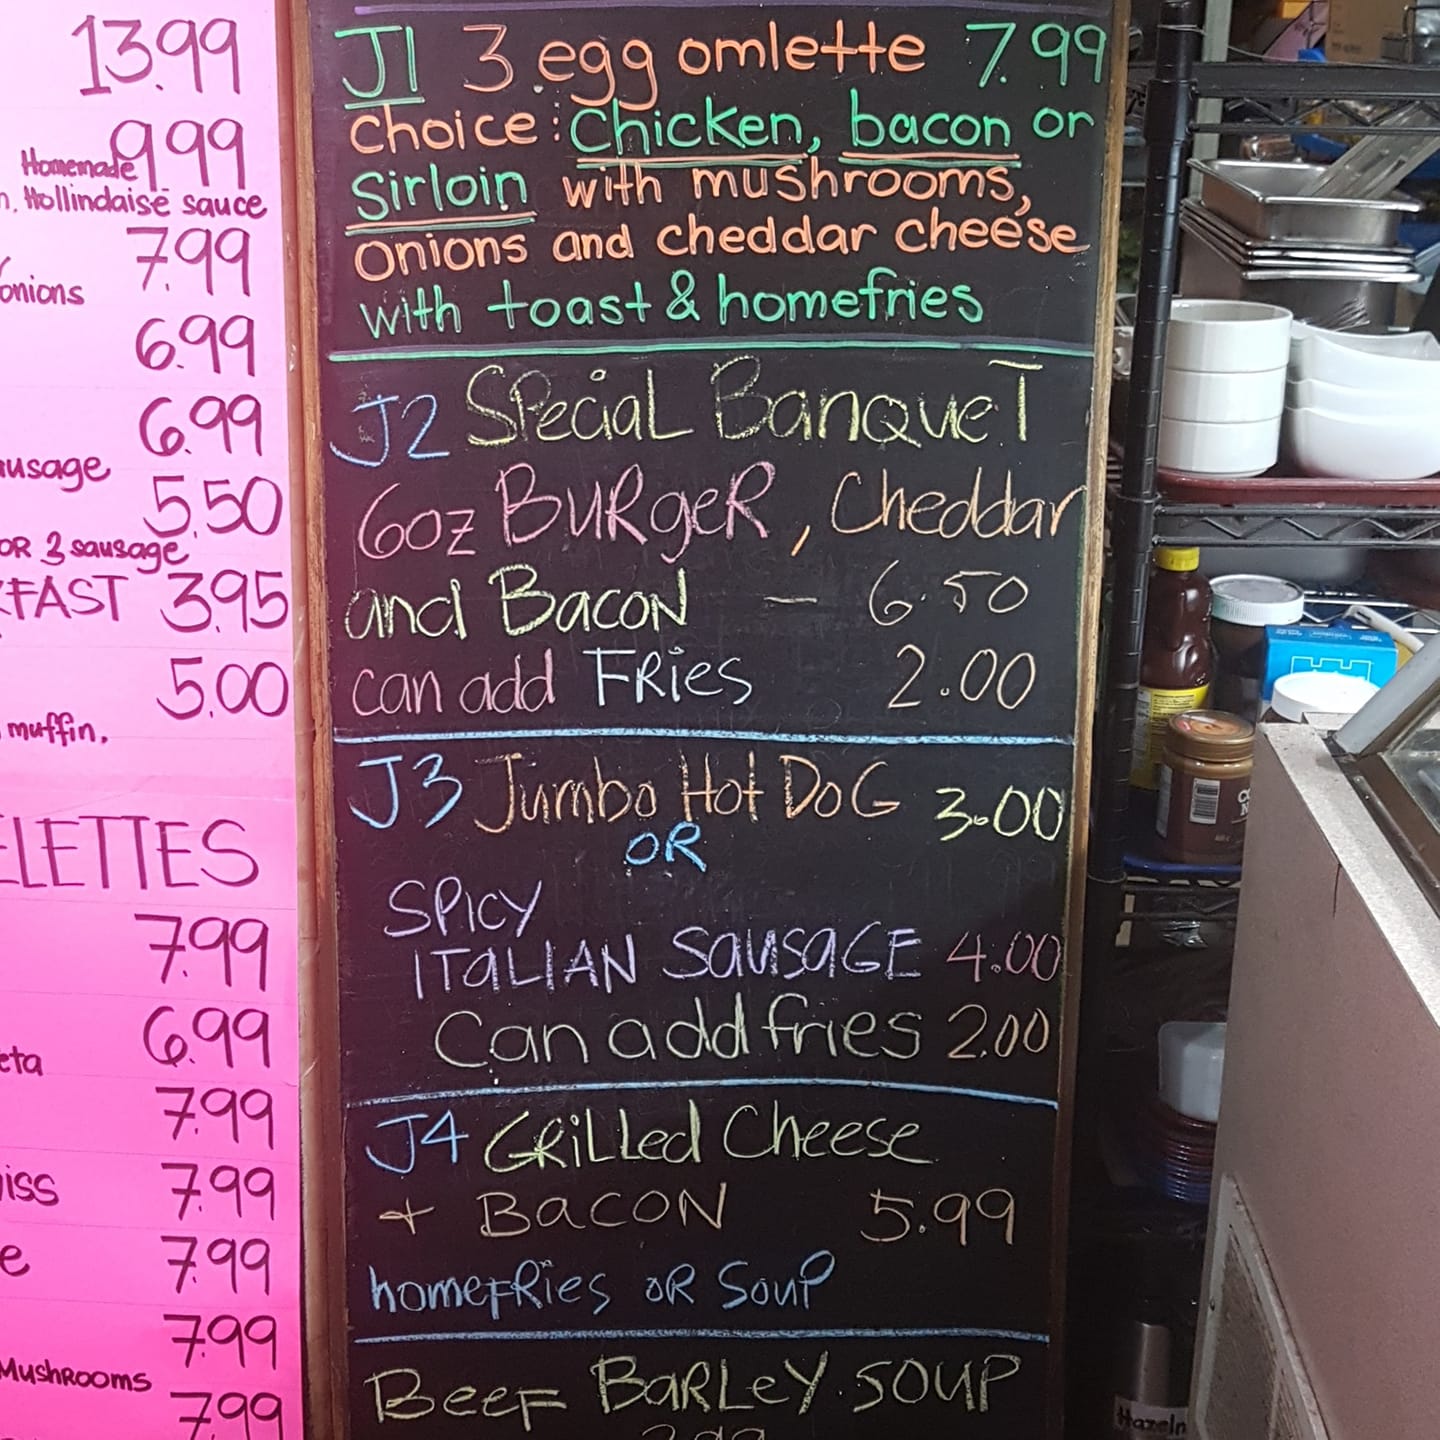 13.99
9.99
Homemade
Hollindaise sauce
7.99
onions
6.99
6.99
5.50
OR 3 sausage
3.95
5.00
muffin.
7.99
6.99
7.99
7.99
7.99
7.99
Mushrooms
7.99
J1 3 egg omlette 7.99
choice: Chicken, bacon or
Sirloin with mushrooms,
onions and cheddar cheese
with toast & homefries
J2 Special Banquet
6oz BURgeR, Cheddar
and Bacon - 6.50
can add FRies 2.00
J3 Jumbo Hot DoG 3.00
OR
SPICY
ITALIAN SausaGE 4.00
Can add fries 2.00
J4 GRilled Cheese
+ BaCON 5.99
homeFRies OR Soup
BeeF BaRLeY SOUP
Hazeln